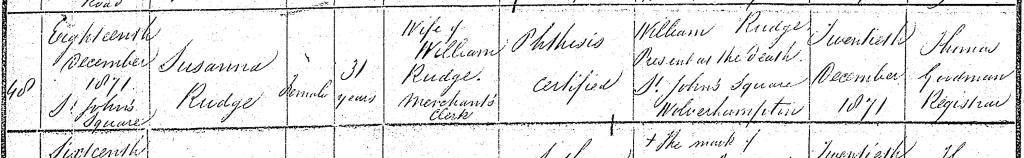 Road
48
Eighteenth
December
1871
St. John's
Square
Susanna
Rudge
Female
31
years
Wife of
William
Rudge.
Merchant's
Clerk
Phthisis
Certified
William Rudge.
Present at the death.
St. John's Square
Wolverhampton
Twentieth
December
1871
Thomas
Goodman
Registrar
Sixteenth
+ The mark of
Twentieth